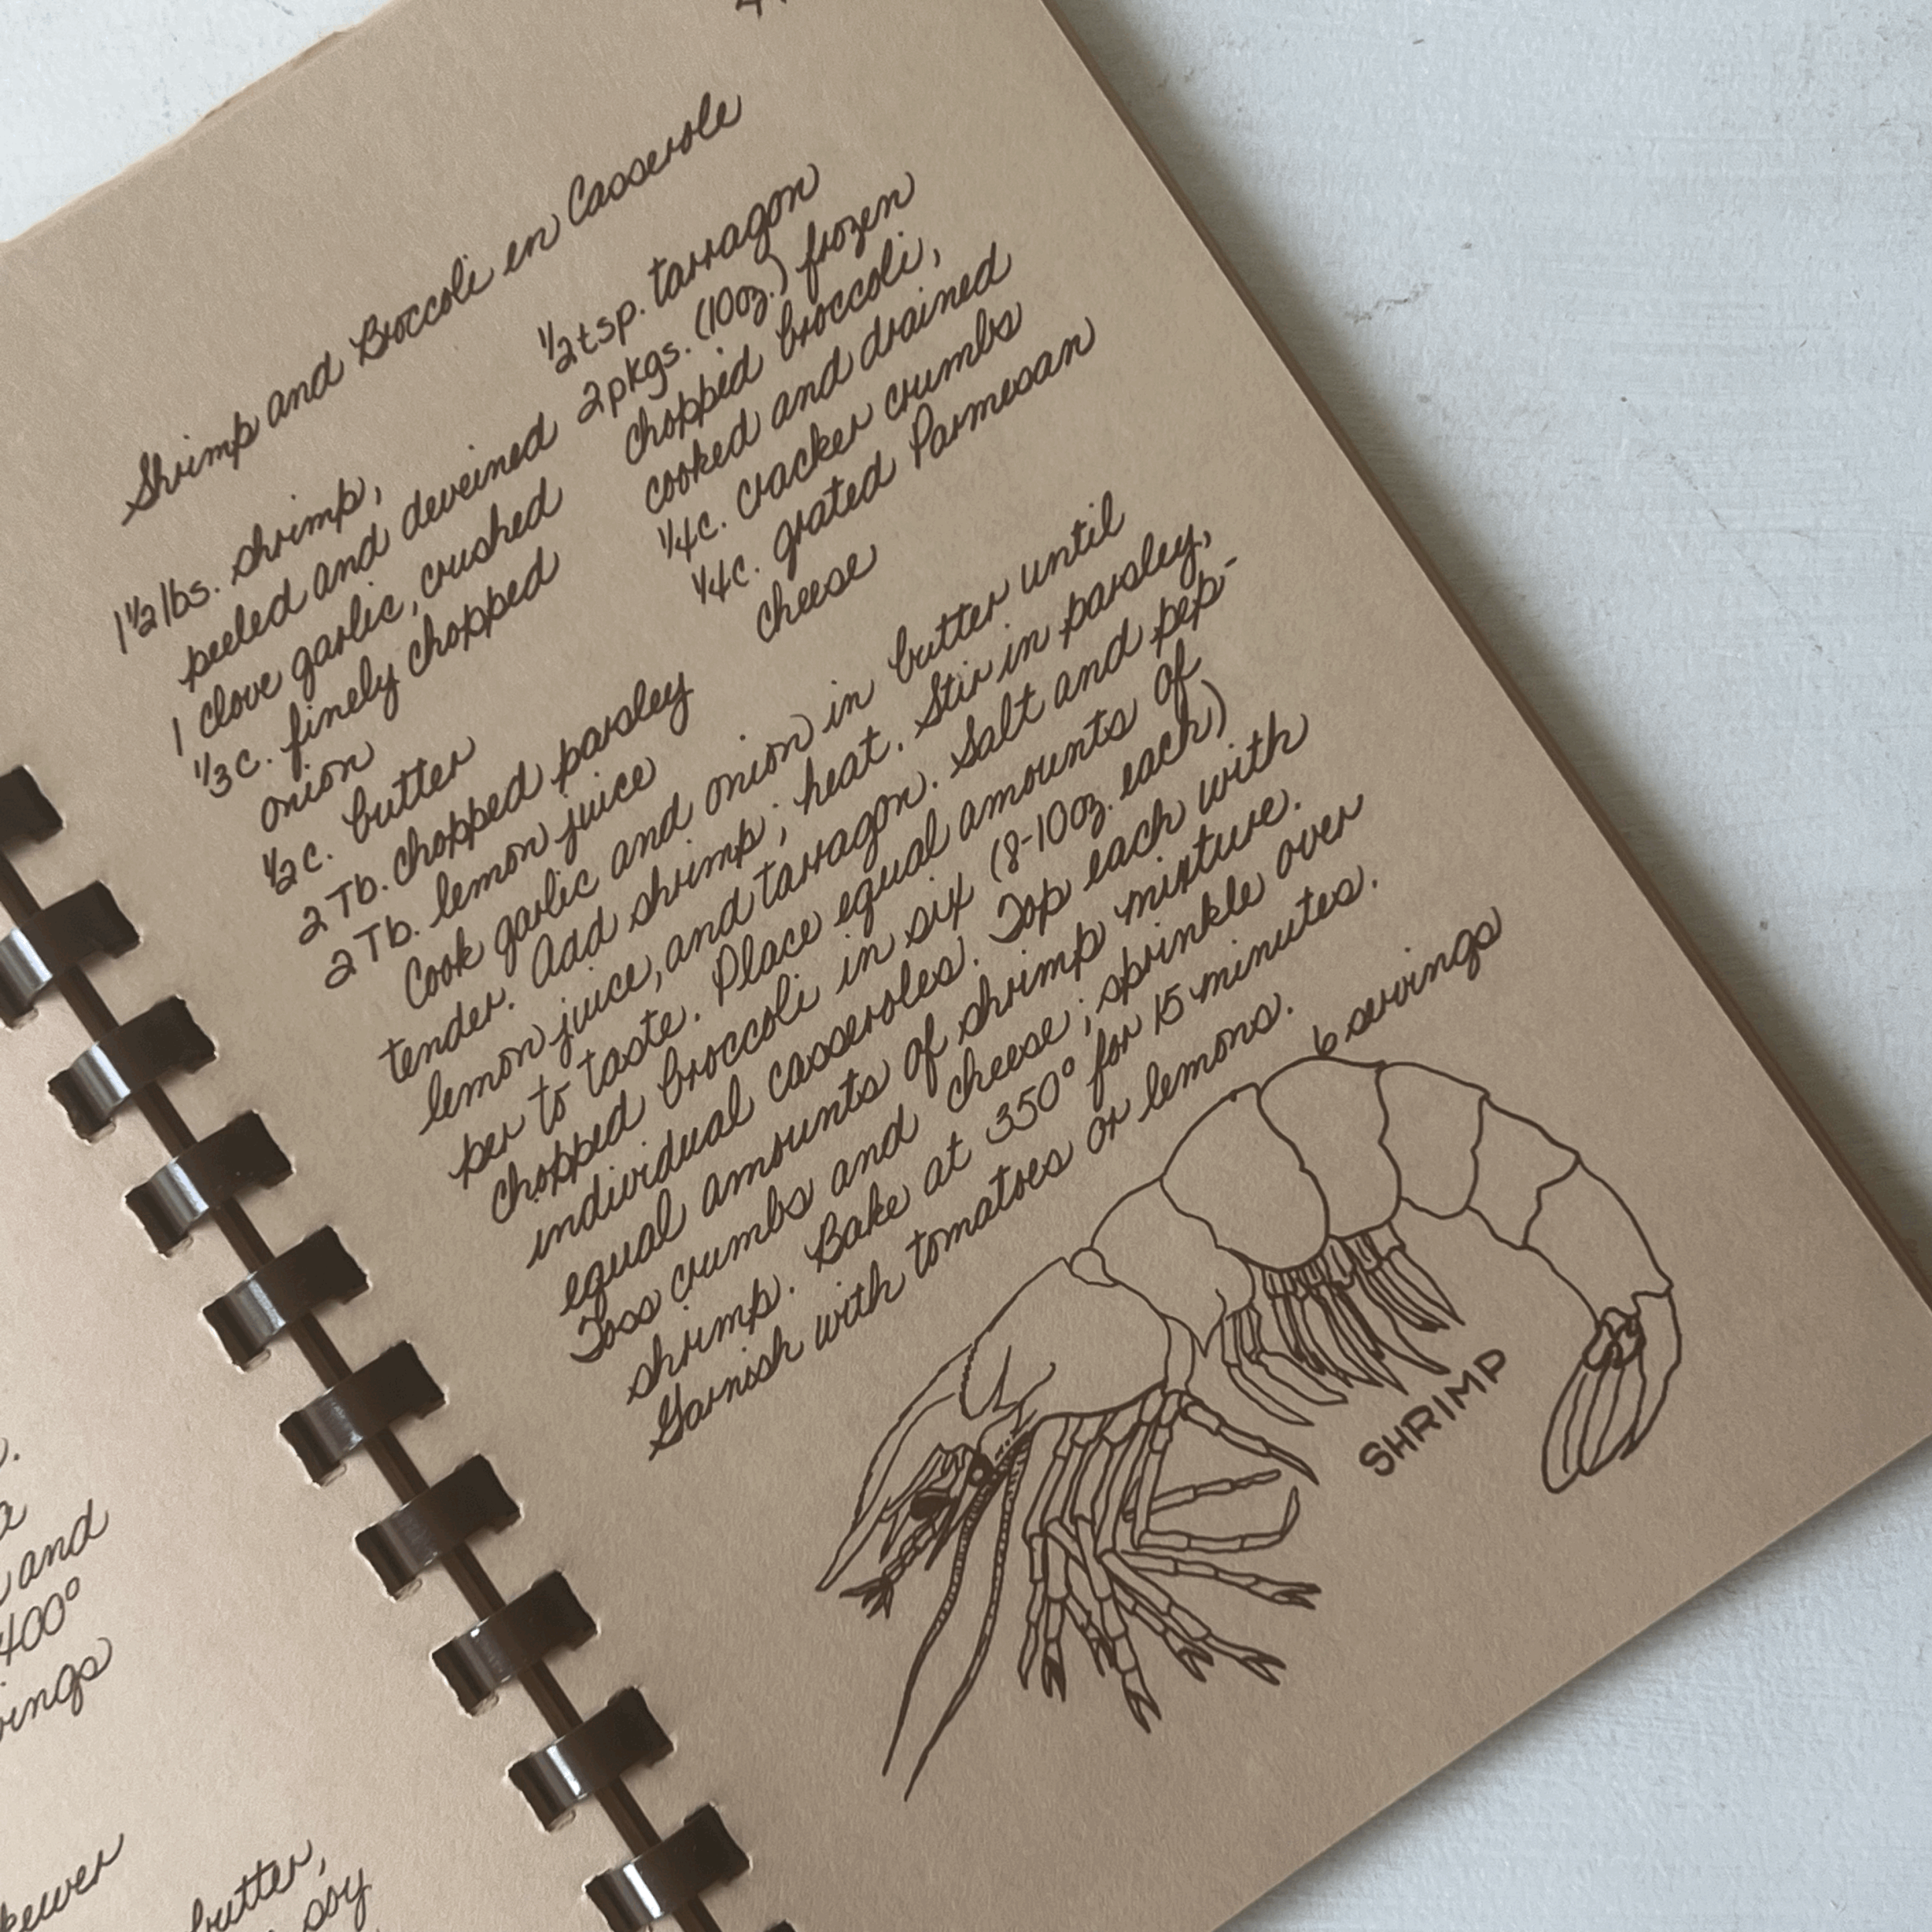 Shrimp and Broccoli en Casserole
1½ lbs. shrimp,
peeled and deveined
1 clove garlic, crushed
⅓ c. finely chopped
onion
½ c. butter
2 Tb. chopped parsley
2 Tb. lemon juice
½ tsp. tarragon
2 pkgs. (10 oz.) frozen
chopped broccoli,
cooked and drained
¼ c. cracker crumbs
¼ c. grated Parmesan
cheese
Cook garlic and onion in butter until
tender. Add shrimp; heat. Stir in parsley,
lemon juice, and tarragon. Salt and pep-
per to taste. Place equal amounts of
chopped broccoli in six (8-10 oz. each)
individual casseroles. Top each with
equal amounts of shrimp mixture.
Toss crumbs and cheese; sprinkle over
shrimp. Bake at 350° for 15 minutes.
Garnish with tomatoes or lemons.
6 servings
SHRIMP
and
400°
butter,
soy